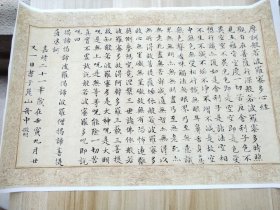 摩訶般若波羅蜜多心經
觀自在菩薩行深般若波羅蜜多時照
見五蘊皆空度一切苦厄舍利子色不
異空空不異色色即是空空即是色受
想行識亦復如是舍利子是諸法空相
不生不滅不垢不淨不增不減是故空
中無色無受想行識無眼耳鼻舌身意
無色聲香味觸法無眼界乃至無意識
界無無明亦無無明盡乃至無老死亦
無老死盡無苦集滅道無智亦無得以
無所得故菩提薩埵依般若波羅蜜多
故心無罣礙無罣礙故無有恐怖遠離
顛倒夢想究竟涅槃三世諸佛依般若
波羅蜜多故得阿耨多羅三藐三菩提
故知般若波羅蜜多是大神呪是大明
呪是無上呪是無等等呪能除一切苦
真實不虛故說般若波羅蜜多呪即說
呪曰
揭諦揭諦波羅揭諦波羅僧揭諦菩提
薩婆訶
嘉靖二十一年歲在壬寅九月廿
又一日書于崑山舟中徵明